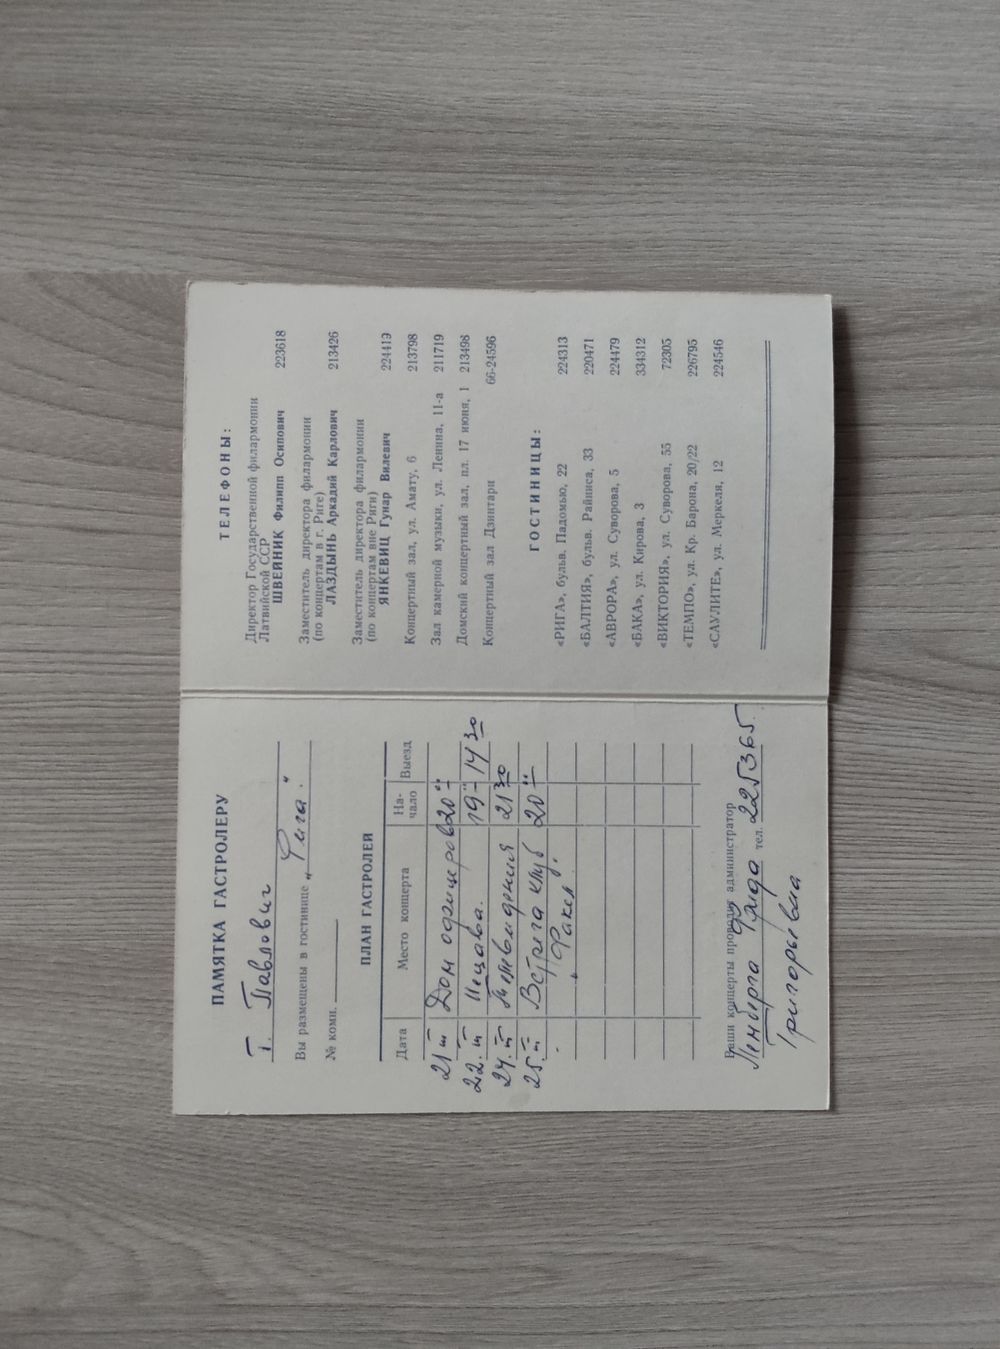 ПАМЯТКА ГАСТРОЛЕРУ
т. Павлович
Вы размещены в гостинице „Рига."
№ комн.
ПЛАН ГАСТРОЛЕЙ
Дата Место концерта На-чало Выезд
21 III Дом офицеров 20 00
22. III Иецава. 19 00 - 14 30
24. III Телевидения 21 30
25. III Встреча клуб 20 00
„Факел".
Ваши концерты проводит администратор
Фрида тел. 225365.
Григорьевна
ТЕЛЕФОНЫ:
Директор Государственной филармонии
Латвийской ССР
ШВЕЙНИК Филипп Осипович 223618
Заместитель директора филармонии
(по концертам в г. Риге)
ЛАЗДЫНЬ Аркадий Карлович 213426
Заместитель директора филармонии
(по концертам вне Риги)
ЯНКЕВИЦ Гунар Вилевич 224419
Концертный зал, ул. Амату, 6 213798
Зал камерной музыки, ул. Ленина, 11-а 211719
Домский концертный зал, пл. 17 июня, 1 213498
Концертный зал Дзинтари 66-24596
ГОСТИНИЦЫ:
«РИГА», бульв. Падомью, 22 224313
«БАЛТИЯ», бульв. Райниса, 33 220471
«АВРОРА», ул. Суворова, 5 224479
«БАКА», ул. Кирова, 3 334312
«ВИКТОРИЯ», ул. Суворова, 55 72305
«ТЕМПО», ул. Кр. Барона, 20/22 226795
«САУЛИТЕ», ул. Меркеля, 12 224546